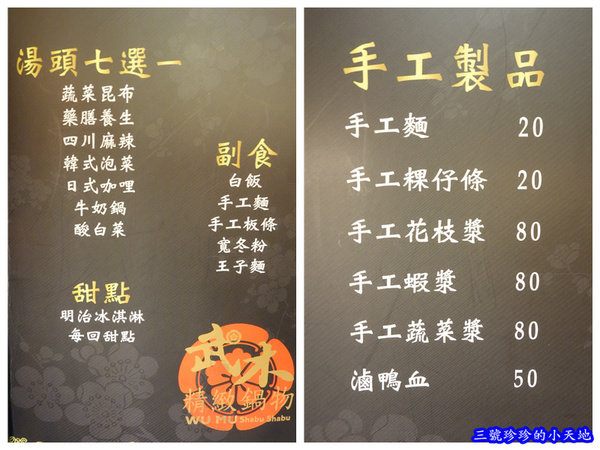 湯頭七選一
蔬菜昆布
藥膳養生
四川麻辣
韓式泡菜
日式咖哩
牛奶鍋
酸白菜
副食
白飯
手工麵
手工板條
寬冬粉
王子麵
甜點
明治冰淇淋
每回甜點
武木
精緻鍋物
WU MU Shabu Shabu
手工製品
手工麵 20
手工粿仔條 20
手工花枝漿 80
手工蝦漿 80
手工蔬菜漿 80
滷鴨血 50
三號珍珍的小天地